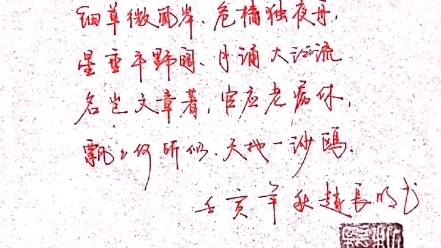 细草微风岸、危樯独夜舟，
星垂平野阔、月涌大江流
名岂文章著，官应老病休，
飘飘何所似、天地一沙鸥。
壬寅年秋赵长明书